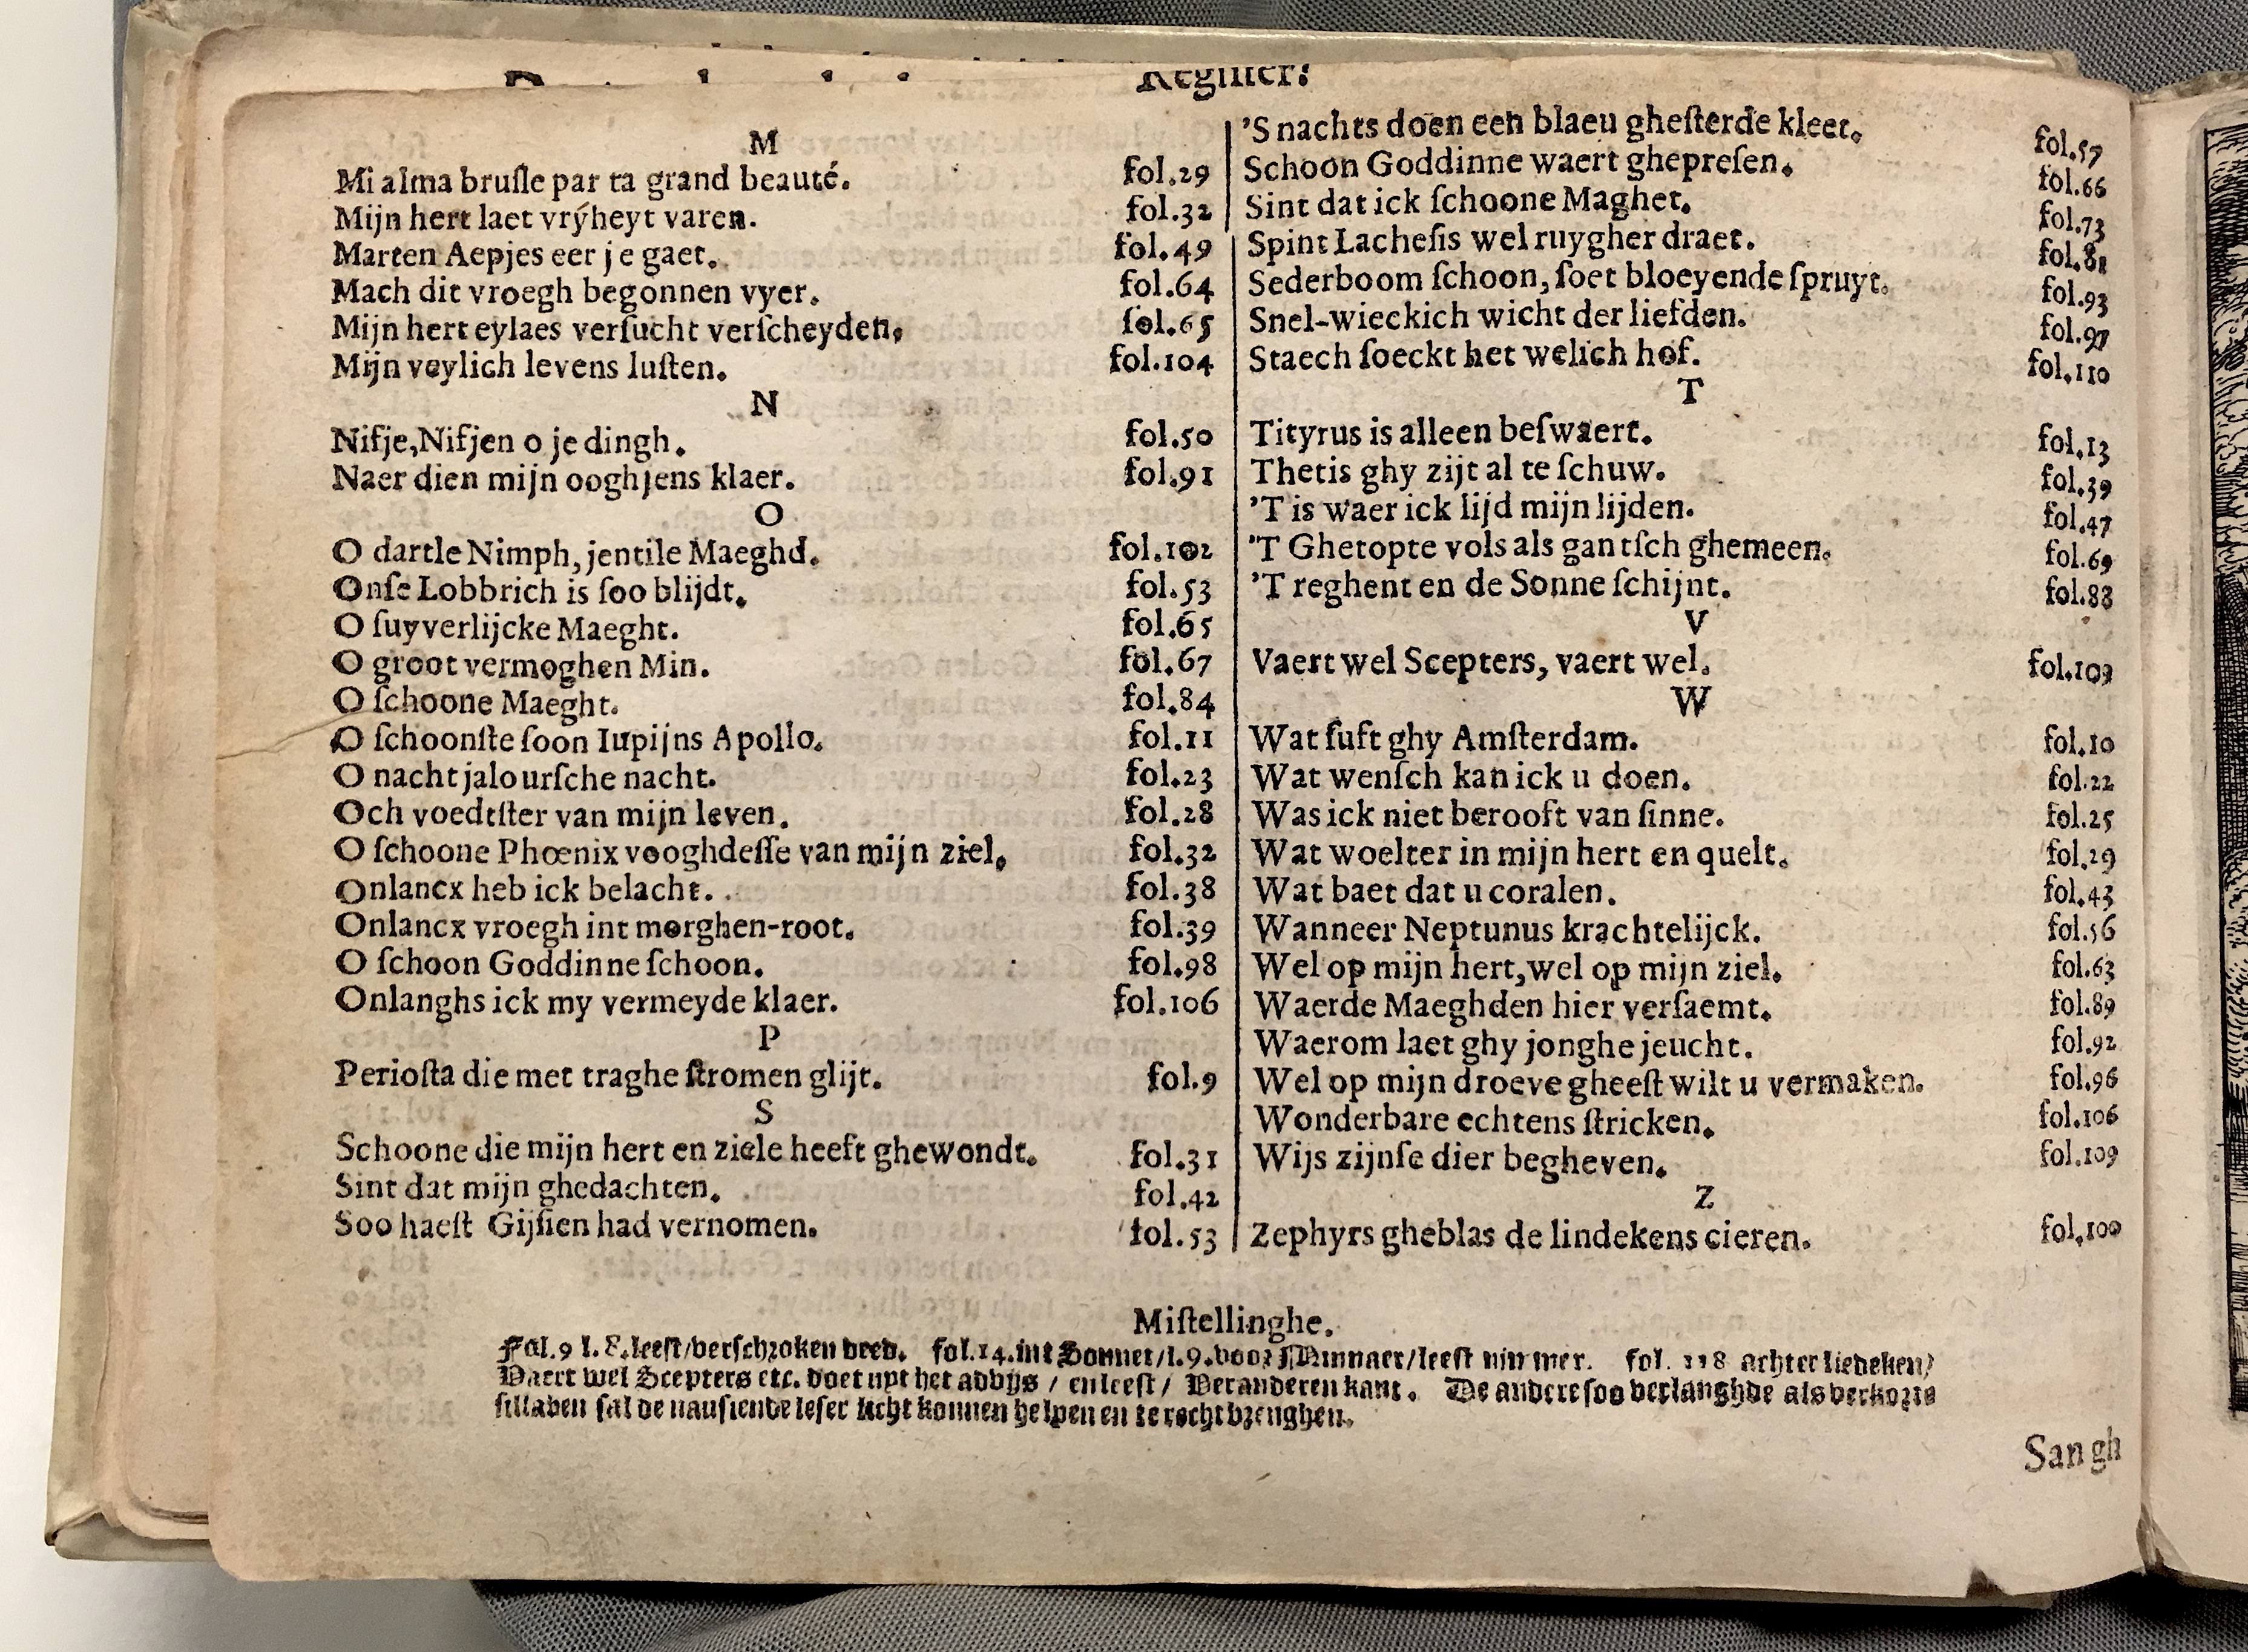 Register.
M
Mi alma brusle par ta grand beauté. fol.29
Mijn hert laet vrýheyt varen. fol.32
Marten Aepjes eer je gaet. fol.49
Mach dit vroegh begonnen vyer. fol.64
Mijn hert eylaes verſucht verſcheyden, fol.65
Mijn veylich levens luſten. fol.104
N
Nifje,Nifjen o je dingh. fol.50
Naer dien mijn ooghjens klaer. fol.91
O
O dartle Nimph, jentile Maeghd. fol.102
Onſe Lobbrich is ſoo blijdt. fol.53
O ſuyverlijcke Maeght. fol.65
O groot vermoghen Min. fol.67
O ſchoone Maeght. fol.84
O ſchoonſte ſoon Iupijns Apollo. fol.11
O nacht jalourſche nacht. fol.23
Och voedtſter van mijn leven. fol.28
O ſchoone Phœnix vooghdeſſe van mijn ziel, fol.32
Onlancx heb ick belacht. fol.38
Onlancx vroegh int morghen-root. fol.39
O ſchoon Goddinne ſchoon. fol.98
Onlanghs ick my vermeyde klaer. fol.106
P
Perioſta die met traghe ſtromen glijt. fol.9
S
Schoone die mijn hert en ziele heeft ghewondt. fol.31
Sint dat mijn ghedachten. fol.42
Soo haeſt Gijſien had vernomen. fol.53
'S nachts doen een blaeu gheſterde kleet. fol.57
Schoon Goddinne waert ghepreſen. fol.66
Sint dat ick ſchoone Maghet. fol.73
Spint Lacheſis wel ruygher draet. fol.81
Sederboom ſchoon, ſoet bloeyende ſpruyt. fol.93
Snel-wieckich wicht der liefden. fol.97
Staech ſoeckt het welich hof. fol.110
T
Tityrus is alleen beſwaert. fol.13
Thetis ghy zijt al te ſchuw. fol.39
'T is waer ick lijd mijn lijden. fol.47
'T Ghetopte vols als gantſch ghemeen. fol.69
'T reghent en de Sonne ſchijnt. fol.88
V
Vaert wel Scepters, vaert wel. fol.109
W
Wat ſuft ghy Amſterdam. fol.10
Wat wenſch kan ick u doen. fol.22
Was ick niet berooft van ſinne. fol.25
Wat woelter in mijn hert en quelt. fol.29
Wat baet dat u coralen. fol.43
Wanneer Neptunus krachtelijck. fol.56
Wel op mijn hert,wel op mijn ziel. fol.63
Waerde Maeghden hier verſaemt. fol.89
Waerom laet ghy jonghe jeucht. fol.92
Wel op mijn droeve gheeſt wilt u vermaken. fol.96
Wonderbare echtens ſtricken. fol.106
Wijs zijnſe dier begheven. fol.109
Z
Zephyrs gheblas de lindekens cieren. fol.100
Miſtellinghe.
Fol.9 l. 8. leeſt/verſchroken deed. fol.14.int Sonnet/l.9.voor Minnaer/leeſt nimmer. fol. 118 achter liedeken/
Vaert wel Scepters etc. doet uyt het advijs / en leeſt / Veranderen kant. De andere ſoo verlanghde als verkorte
ſillaben ſal de nauſiende leſer licht konnen helpen en te recht brenghen.
Sangh